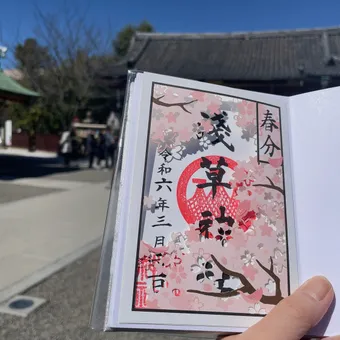 春分
浅草神社
令和六年三月吉日